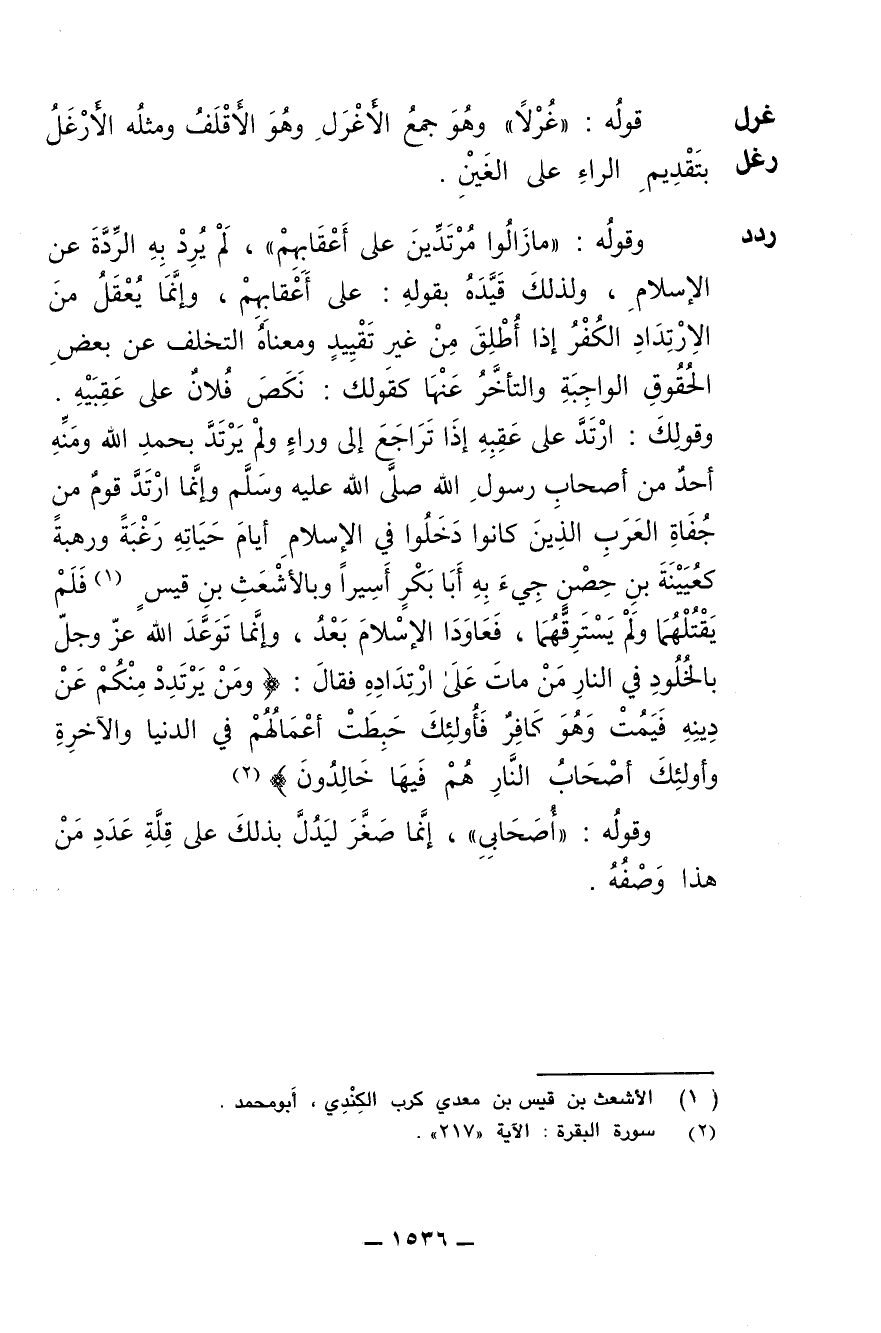 غرل قولُه : «غُرْلاً» وهُوَ جمعُ الأَغْرَلِ وهُوَ الأَقْلَفُ ومثلُه الأَرْغَلُ
رغل بتَقْدِيمِ الراءِ على الغَيْنِ .
ردد وقولُه : «مازَالُوا مُرْتَدِّينَ على أَعْقَابِهِمْ» ، لَمْ يُرِدْ بِهِ الرِّدَّةَ عن
الإسلامِ ، ولذلكَ قَيَّدَهُ بقولهِ : على أَعْقابِهِمْ ، وإنَّمَا يُعْقَلُ منَ
الاِرْتِدَادِ الكُفْرُ إذا أُطْلِقَ مِنْ غيرِ تَقْيِيدٍ ومعناهُ التخلف عن بعضِ
الحُقُوقِ الواجِبَةِ والتأخَّرُ عَنْهَا كقَولك : نَكَصَ فُلانٌ على عَقِبَيْهِ .
وقولِكَ : ارْتَدَّ على عَقِبِهِ إذَا تَرَاجَعَ إلى وراءٍ ولَمْ يَرْتَدَّ بحمدِ الله ومَنِّهِ
أحدٌ من أصحابِ رسولِ الله صلَّى الله عليه وسَلَّم وإنَّما ارْتَدَّ قومٌ من
جُفَاةِ العَرَبِ الذِينَ كانوا دَخَلُوا في الإسلامِ أيامَ حَيَاتِهِ رَغْبَةً ورهبةً
كعُيَيْنَةَ بنِ حِصْنٍ جِيءَ بِهِ أَبَا بَكْرٍ أَسِيراً وبالأشْعَثِ بنِ قيسٍ (١) فَلَمْ
يَقْتُلْهُمَا ولَمْ يَسْتَرِقَّهُمَا ، فَعَاوَدَا الإسْلامَ بَعْدُ ، وإنَّما تَوَعَّدَ الله عزّ وجلّ
بالخُلُودِ في النارِ مَنْ ماتَ عَلَىٰ ارْتِدَادِهِ فقالَ : ﴿ ومَنْ يَرْتَدِدْ مِنْكُمْ عَنْ
دِينِهِ فَيَمُتْ وَهُوَ كَافِرٌ فَأُولئِكَ حَبِطَتْ أعْمَالُهُمْ في الدنيا والآخرِةِ
وأولئِكَ أصْحَابُ النَّارِ هُمْ فَيهَا خَالِدُونَ ﴾ (٢)
وقولُه : «أُصَحَابِي» ، إنَّما صَغَّرَ ليَدُلَّ بذلكَ على قِلَّةِ عَدَدِ مَنْ
هذا وَصْفُهُ .
( ١ ) الأشعث بن قيس بن معدي كرب الكِنْدِي ، أبومحمد .
(٢) سورة البقرة : الآية «٢١٧» .
ـ ١٥٣٦ ـ